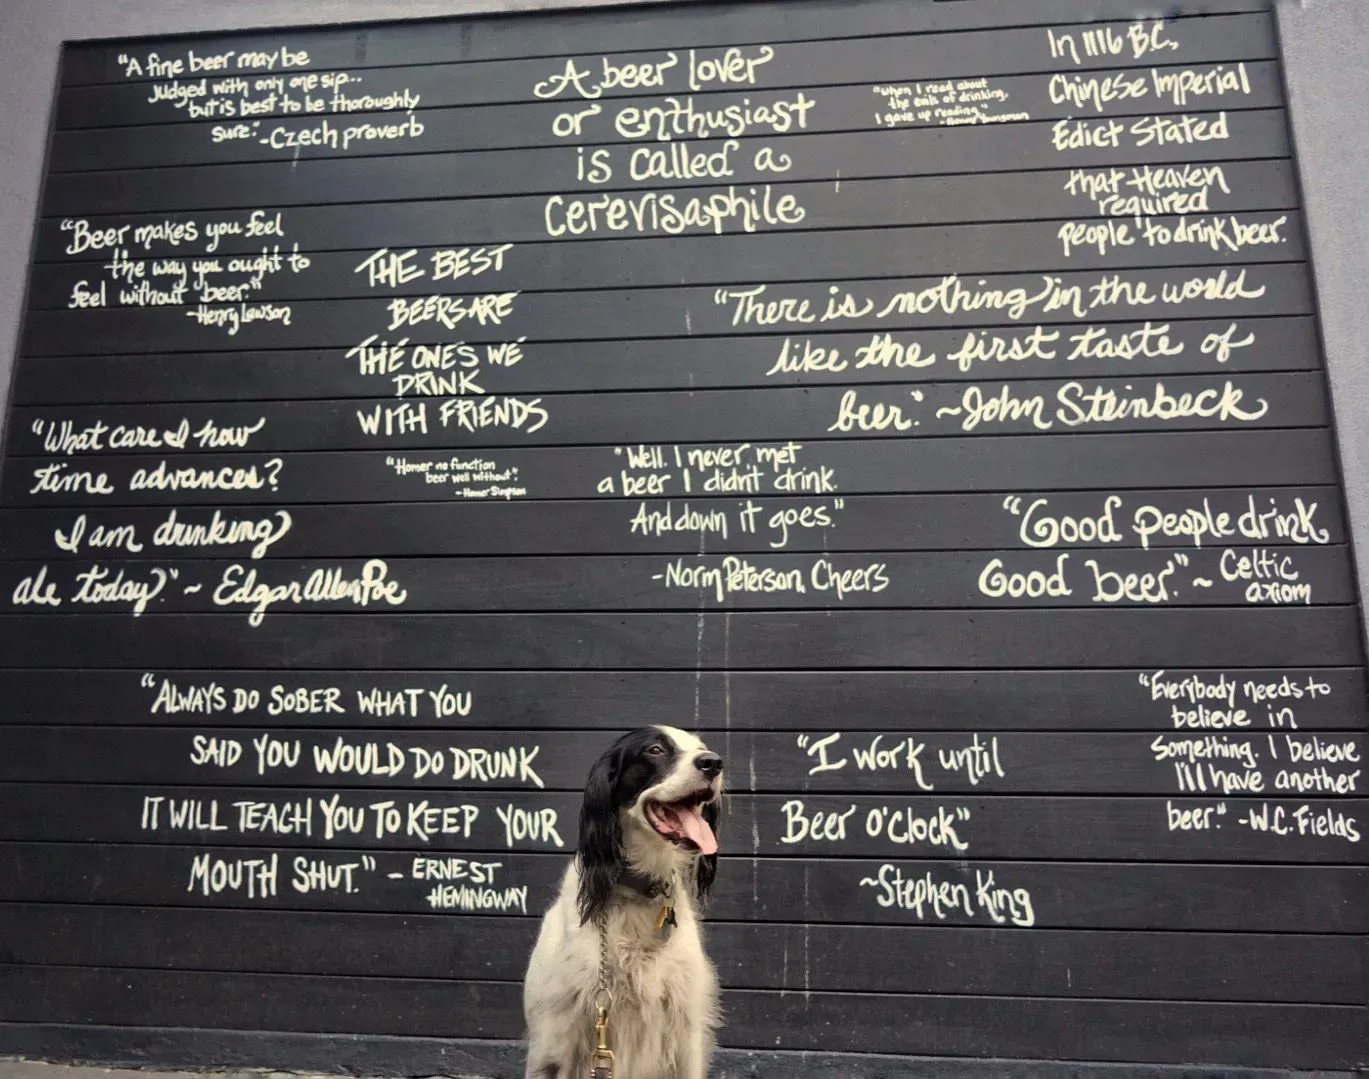 "A fine beer may be
Judged with only one sip...
but is best to be thoroughly
sure." -Czech proverb
A beer lover
or enthusiast
is called a
Cerevisaphile
"When I read about
the evils of drinking,
I gave up reading."
-Henny Youngman
In 1116 B.C.,
Chinese Imperial
Edict Stated
that Heaven
required
people to drink beer.
"Beer makes you feel
the way you ought to
feel without beer."
-Henry Lawson
THE BEST
BEERS ARE
THE ONES WE
DRINK
WITH FRIENDS
"There is nothing in the world
like the first taste of
beer." ~John Steinbeck
"What care I how
time advances?
I am drinking
ale today." ~ Edgar Allen Poe
"Homer no function
beer well without".
-Homer Simpson
"Well. I never met
a beer I didn't drink.
And down it goes."
-Norm Peterson, Cheers
"Good people drink
Good beer." ~ Celtic
axiom
"ALWAYS DO SOBER WHAT YOU
SAID YOU WOULD DO DRUNK
IT WILL TEACH YOU TO KEEP YOUR
MOUTH SHUT." - ERNEST
HEMINGWAY
"I work until
Beer O'Clock"
~Stephen King
"Everybody needs to
believe in
Something. I believe
I'll have another
beer." -W.C. Fields